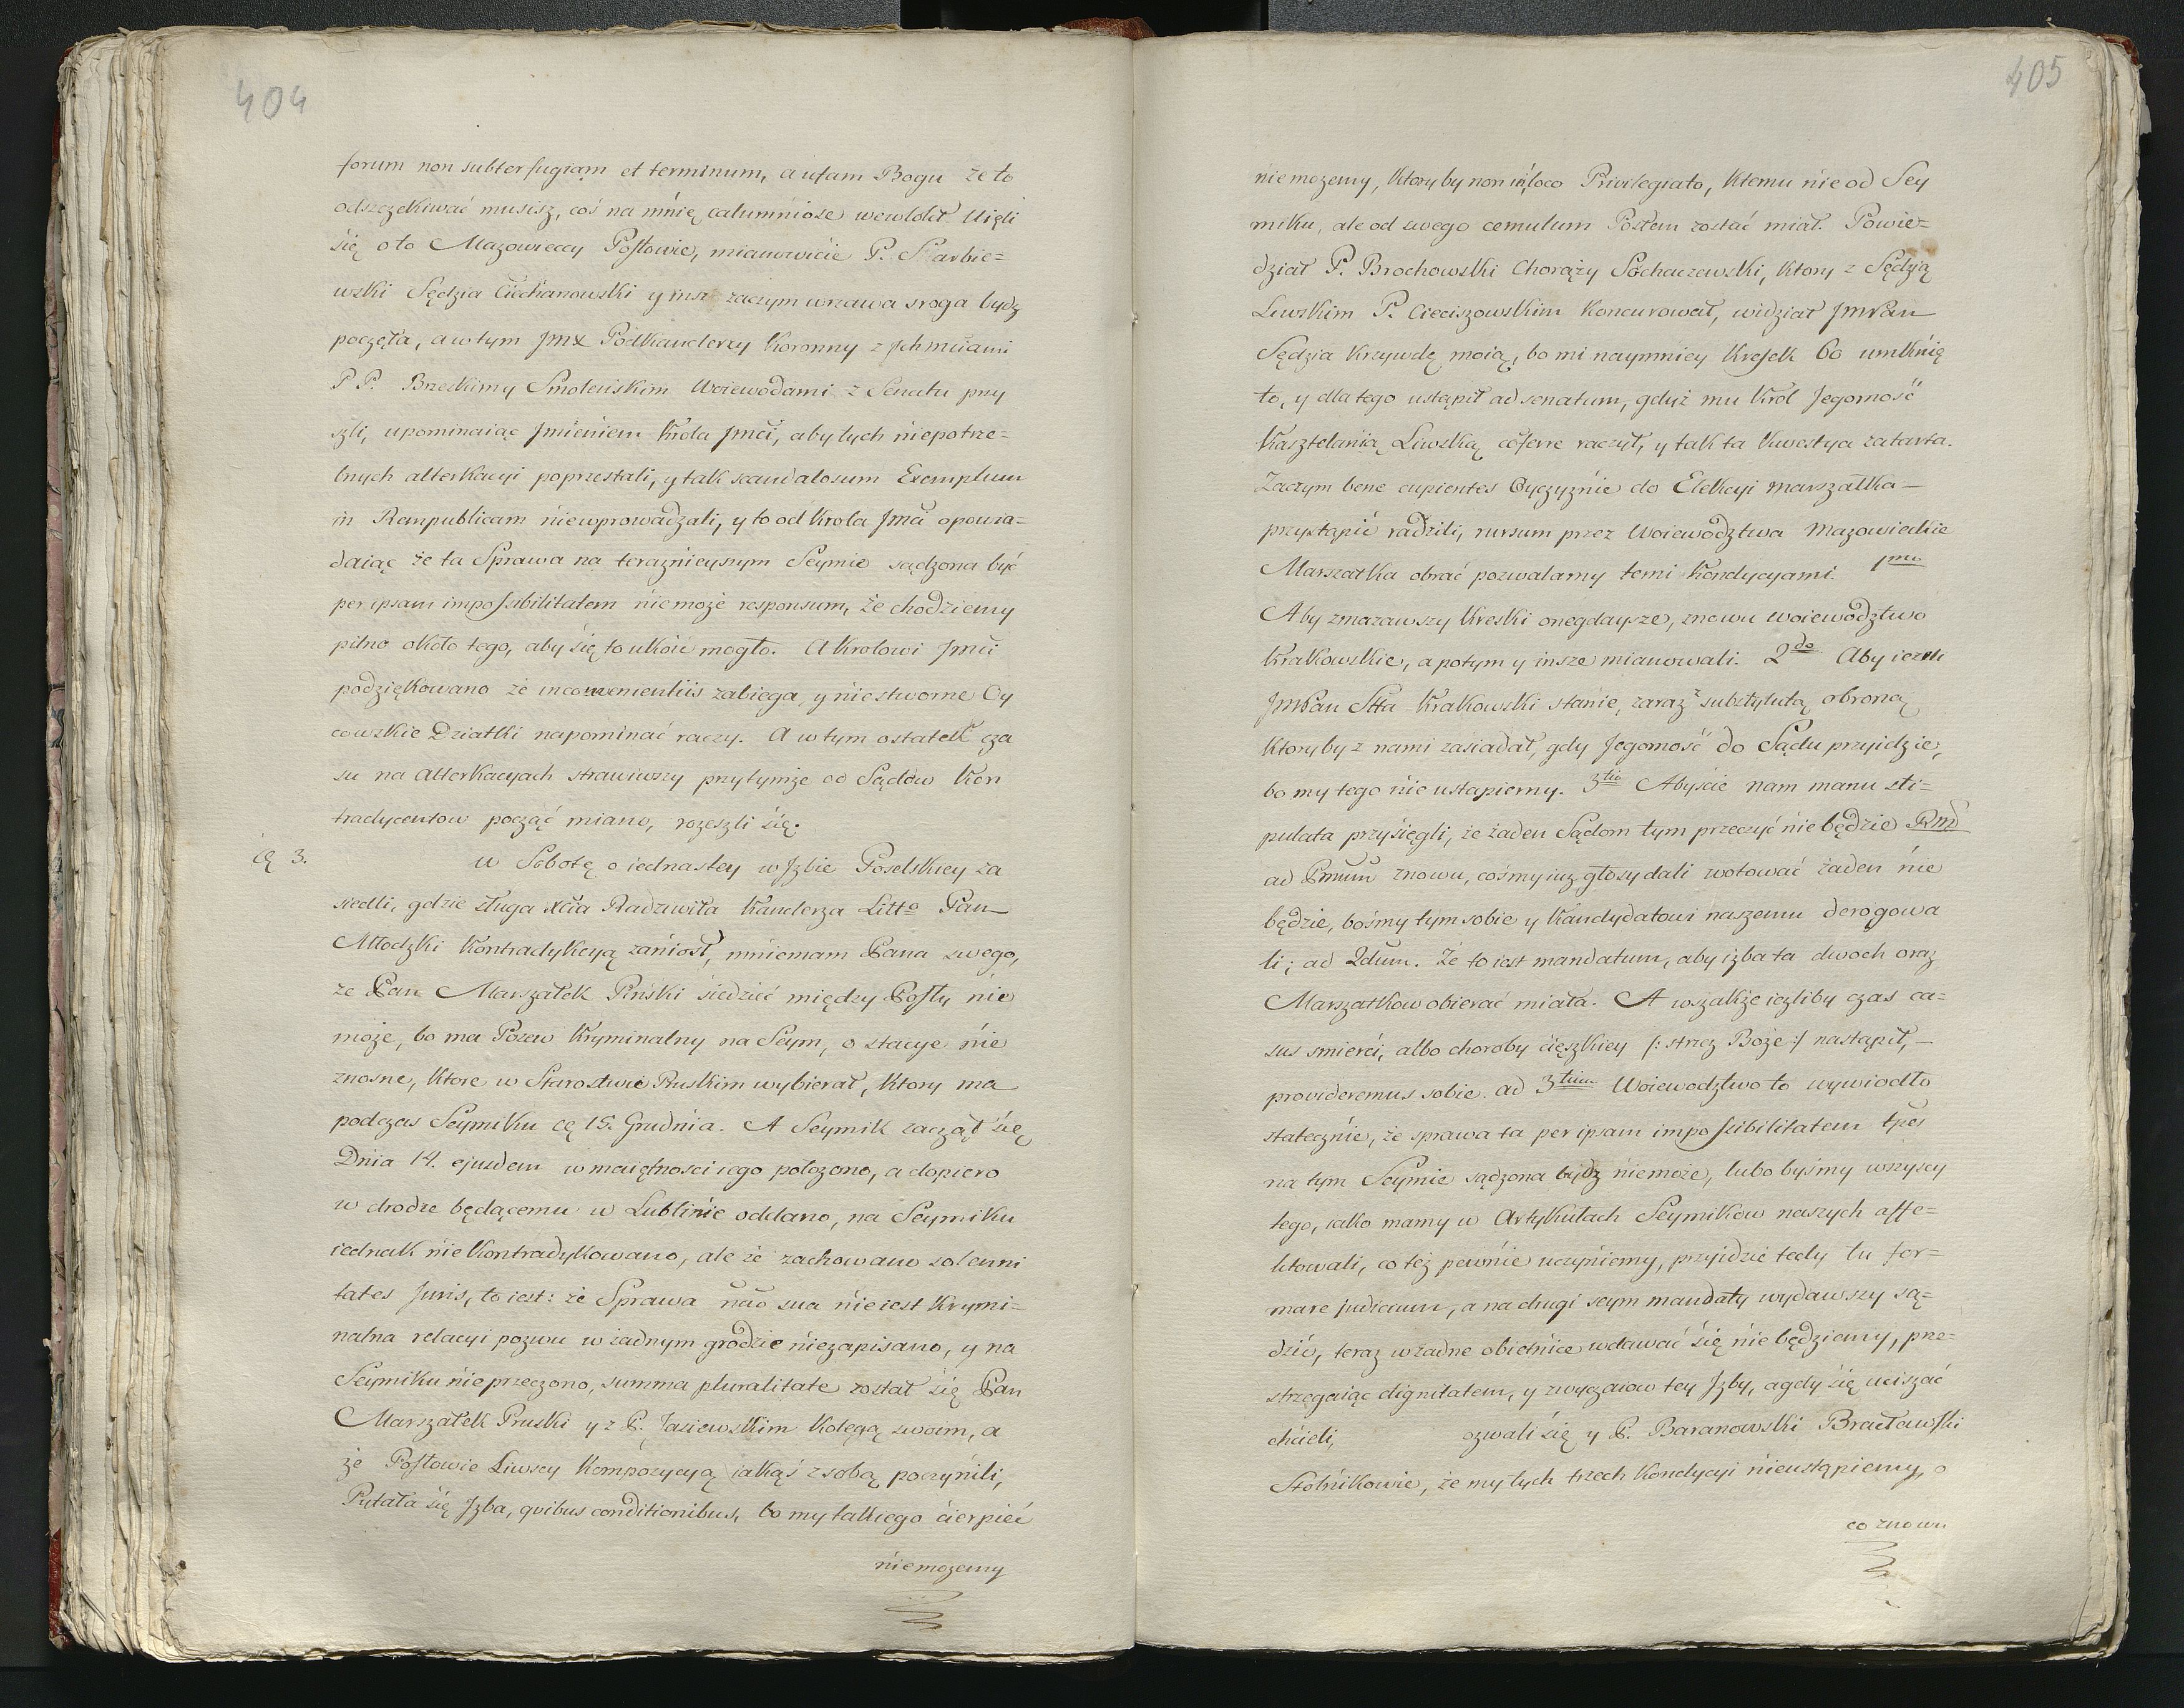 404
forum non subterfugiam et terminum, a ufam Bogu że to
odszczekiwać musisz, coś na mnię calumniose wewlókł Uięli
się o to Mazowieccy Posłowie, mianowicie P. Sarbie=
wski Sędzia Ciechanowski y insi zaczym wrzawa sroga bydz
poczęła, a w tym Jmx Podkanclerzy Koronny z Ichmciami
P P. Brzeskimy Smolenskim Woiewodami z Senatu przy
szli, upominaiąc Imieniem Krola Jmci, aby tych niepotrze=
bnych alterkacyi poprzestali, y tak scandalosum Exemplum
in Rempublicam niewprowadzali, y to od Krola Jmci opowia=
daiąc że ta Sprawa na teraznieyszym Seymie sądzona być
per ipsam impossibilitatem niemoże responsum, że chodziemy
pilno około tego, aby się to ukoić mogło. A Krolowi Jmci
podziękowano że inconvenientiis zabiega, y niestworne Oy
cowskie Dziatki napominać raczy. A w tym ostatek cza
su na Alterkacyach strawiwszy przytymże od Sądow Kon
tradycentow począć miano, rozeszli się.
cę 3.
W Sobotę o iednastey w Izbie Poselskiey za
siedli, gdzie sługa Xcia Radziwiła Kanclerza Litto Pan
Młodzki Kontradykcyą zaniosł, mniemam Pana swego,
że Pan Marszałek Pinski siedzieć między Posły nie
może, bo ma Pozew Kryminalny na Seym, o stacye nie
znosne, ktore w Starostwie Pruskim wybierał, ktory ma
podczas Seymiku cę 15. Grudnia. A Seymik zaczął się
Dnia 14. ejusdem w maiętnosci iego położono, a dopiero
w drodze będącemu w Lublinie oddano, na Seymiku
iednak nie Kontradykowano, ale że zachowano solenni
tates Juris, to iest: że Sprawa não sua nie iest Krymi=
nalna relacyi pozwu w żadnym grodzie niezapisano, y na
Seymiku nie przeczono, summa pluralitate został się Pan
Marszałek Pruski y z P. Jasiewskim Kolegą swoim, a
że Posłowie Liwscy Kompozycyą iakąś z sobą poczynili,
Pytała się Izba, quibus conditionibus, bo my takiego cierpieć
niemozemy
405
niemozemy, ktory by non in loco Privilegiato, ktemu nie od Sey
miku, ale od swego cemulum Posłem zostać miał. Powie=
dział P. Brochowski Chorąży Sochaczewski, ktory z Sędzią
Liwskim P. Cieciszowskim Koncurował, widział JmPan
Sędzia krzywdę moią, bo mi naymniey kresek 60 umknię
to, y dla tego ustąpił ad senatum, gdyż mu Krol Jegomość
Kasztelanią Liwską cõferre raczył, y tak ta Kwestya zatarta.
Zaczym bene cupientes Oyczyznie do Elekcyi marszałka —
przystąpić radzili, rursum przez Woiewodztwa Mazowieckie
Marszałka obrać pozwalamy temi Kondycyami. pmo
Aby zmazawszy kreski onegdaysze, znowu woiewodztwo
Krakowskie, a potym y insze mianowali. 2do Aby iezeli
JmPan Stta Krakowski stanie, zaraz substytutą obroną
ktoryby z nami zasiadał, gdy Jegomość do Sądu przyidzie,
bo my tego nie ustąpiemy. 3tio Abyście nam manu sti=
pulata przysięgli, że żaden Sądom tym przeczyć nie będzie Rnd
ad Pmum znowu, cośmy iuz głosy dali wotować żaden nie
będzie, bośmy tym sobie y Kandydatowi naszemu derogowa
li; ad 2dum. Że to iest mandatum, aby izba ta dwoch oraz
Marszałkow obierać miała. A wszakże iezliby czas ca=
sus smierci, albo choroby cięszkiey /: strzez Boże :/ nastąpił, —
provideremus sobie. ad 3tium Woiewodztwo to wywiodło
statecznie, że sprawa ta per ipsam impossibilitatem tpis
na tym Seymie sądzona bydz niemoże, lubo byśmy wszyscy
tego, iako mamy w Artykułach Seymikow naszych affe=
ktowali, co też pewnie uczyniemy, przyidzie tedy tu for=
mare judicium, a na drugi seym mandaty wydawszy są=
dzić, teraz w żadne obietnice wdawać się nie będziemy, prze=
strzegaiąc dignitatem, y zwyczaiow tey Izby, a gdy się uciszać
chcieli, ozwali się y P. Baranowski Bracławski
Stolnikowie, że my tych trzech Kondycyi nieustąpiemy, o
co znowu